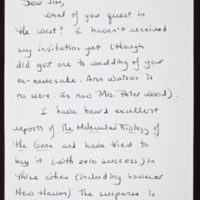 Dear Jim,
What of your quest in
the West? I haven't received
my invitation yet (though
did get one to wedding of your
ex-namesake. Ann Watson is
no more. Is now Mrs. Peter Wood).
I have heard excellent
reports of The Molecular Biology of
the Gene and have tried to
buy it (with zero success) in
three cities (including however
New Haven). The suspense is